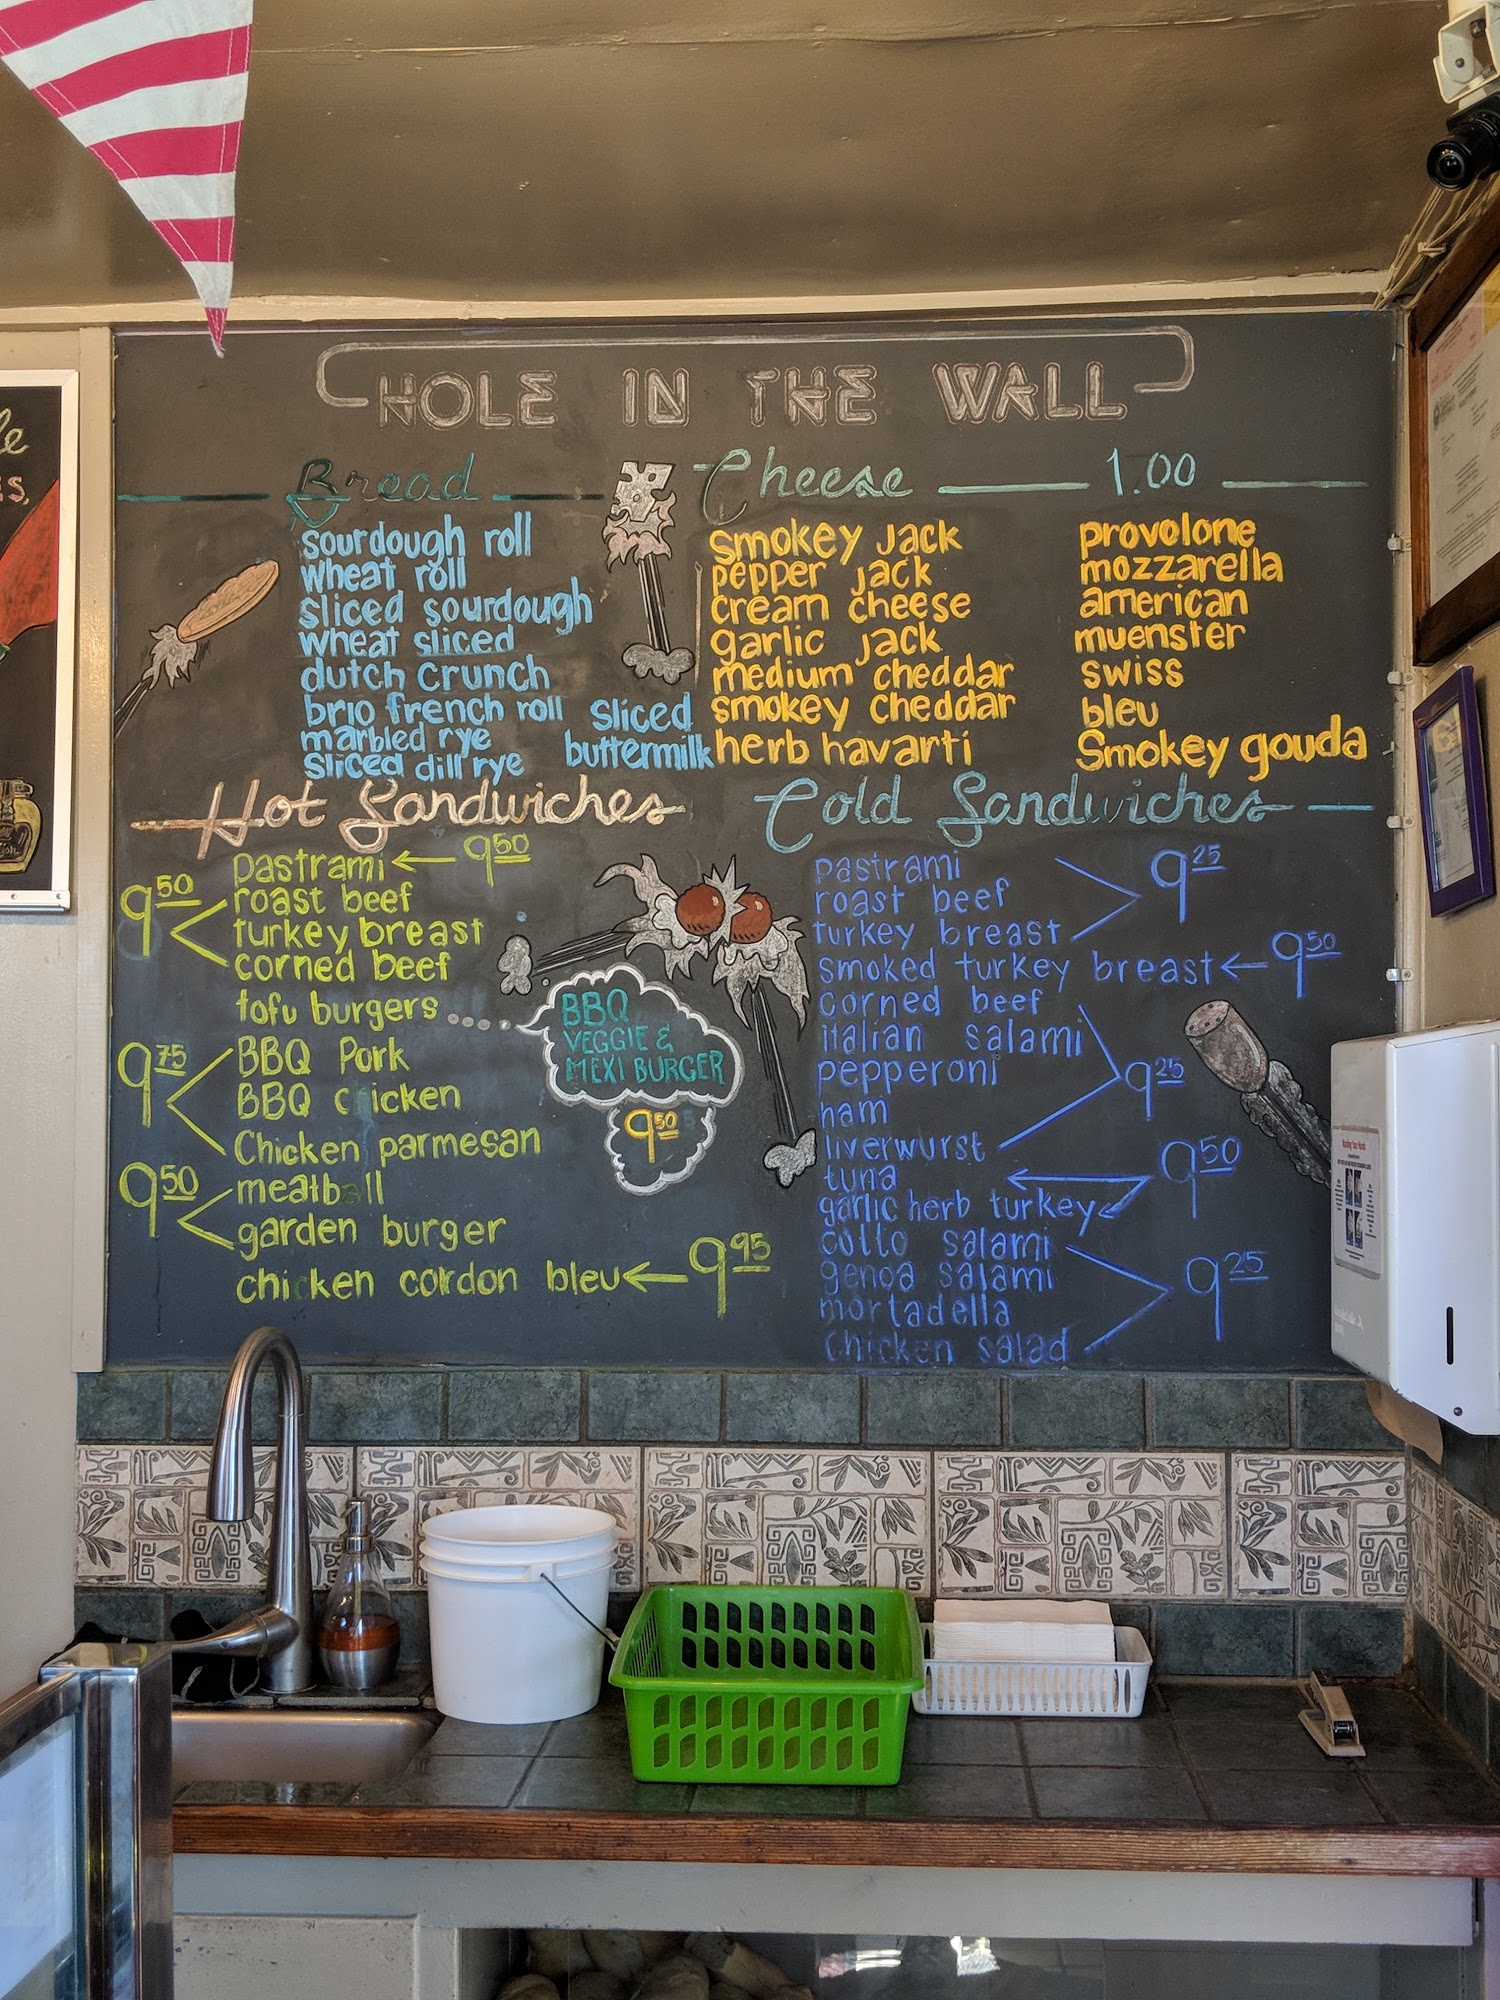 HOLE IN THE WALL
Bread
sourdough roll
wheat roll
sliced sourdough
wheat sliced
dutch crunch
brio french roll
marbled rye
sliced dill rye
sliced
buttermilk
Cheese 1.00
smokey jack
pepper jack
cream cheese
garlic jack
medium cheddar
smokey cheddar
herb havarti
provolone
mozzarella
american
muenster
swiss
bleu
Smokey gouda
Hot Sandwiches
pastrami 9 50
9 50
roast beef
turkey breast
corned beef
tofu burgers
BBQ
VEGGIE &
MEXI BURGER
9 50
9 75
BBQ Pork
BBQ c icken
Chicken parmesan
9 50
meatball
garden burger
chicken cordon bleu 9 95
Cold Sandwiches
pastrami
roast beef
turkey breast
9 25
smoked turkey breast 9 50
corned beef
italian salami
pepperoni
ham
liverwurst
9 25
tuna
garlic herb turkey
9 50
cotto salami
genoa salami
mortadella
chicken salad
9 25